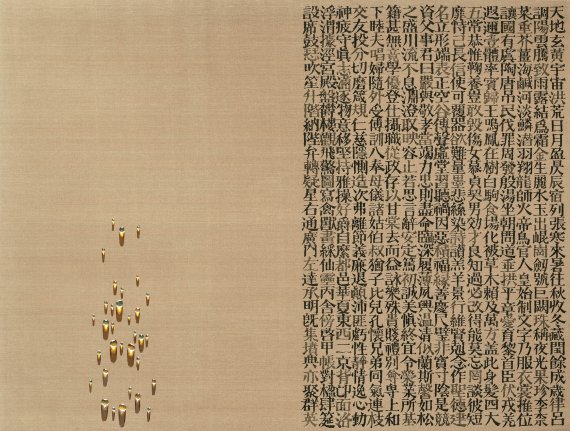 天地玄黃宇宙洪荒日月盈昃辰宿列張寒來暑往秋收冬藏閏餘成歲律呂
調陽雲騰致雨露結爲霜金生麗水玉出崑岡劍號巨闕珠稱夜光果珍李柰
菜重芥薑海鹹河淡鱗潛羽翔龍師火帝鳥官人皇始制文字乃服衣裳推位
讓國有虞陶唐弔民伐罪周發殷湯坐朝問道垂拱平章愛育黎首臣伏戎羌
遐邇壹體率賓歸王鳴鳳在樹白駒食場化被草木賴及萬方蓋此身髮四大
五常恭惟鞠養豈敢毀傷女慕貞烈男效才良知過必改得能莫忘罔談彼短
靡恃己長信使可覆器欲難量墨悲絲染詩讚羔羊景行維賢克念作聖德建
名立形端表正空谷傳聲虛堂習聽禍因惡積福緣善慶尺璧非寶寸陰是競
資父事君曰嚴與敬孝當竭力忠則盡命臨深履薄夙興溫凊似蘭斯馨如松
之盛川流不息淵澄取映容止若思言辭安定篤初誠美愼終宜令榮業所基
籍甚無竟學優登仕攝職從政存以甘棠去而益詠樂殊貴賤禮別尊卑上和
下睦夫唱婦隨外受傅訓入奉母儀諸姑伯叔猶子比兒孔懷兄弟同氣連枝
交友投分切磨箴規仁慈隱惻造次弗離節義廉退顚沛匪虧性靜情逸心動
神疲守眞志滿逐物意移堅持雅操好爵自縻都邑華夏東西二京背邙面洛
浮渭據涇宮殿盤鬱樓觀飛驚圖寫禽獸畫彩仙靈丙舍傍啓甲帳對楹肆筵
設席鼓瑟吹笙升階納陛弁轉疑星右通廣內左達承明旣集墳典亦聚群英